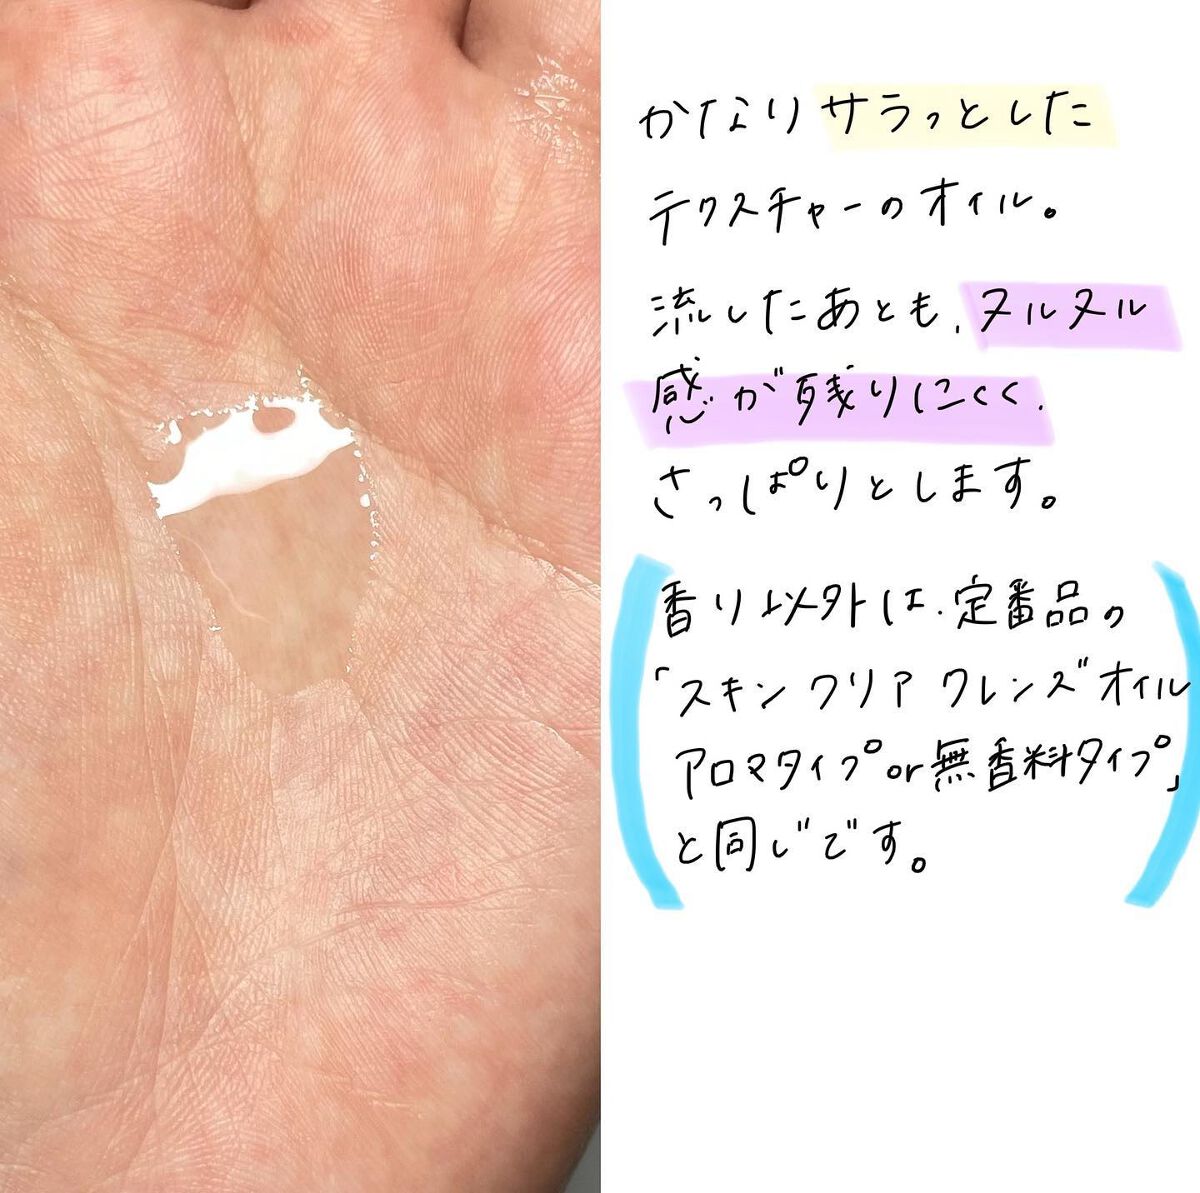 かなりサラっとした
テクスチャーのオイル。
流したあとも、ヌルヌル
感が残りにくく、
さっぱりとします。
香り以外は、定番品の
「スキンクリア クレンズオイル
アロマタイプor無香料タイプ」
と同じです。